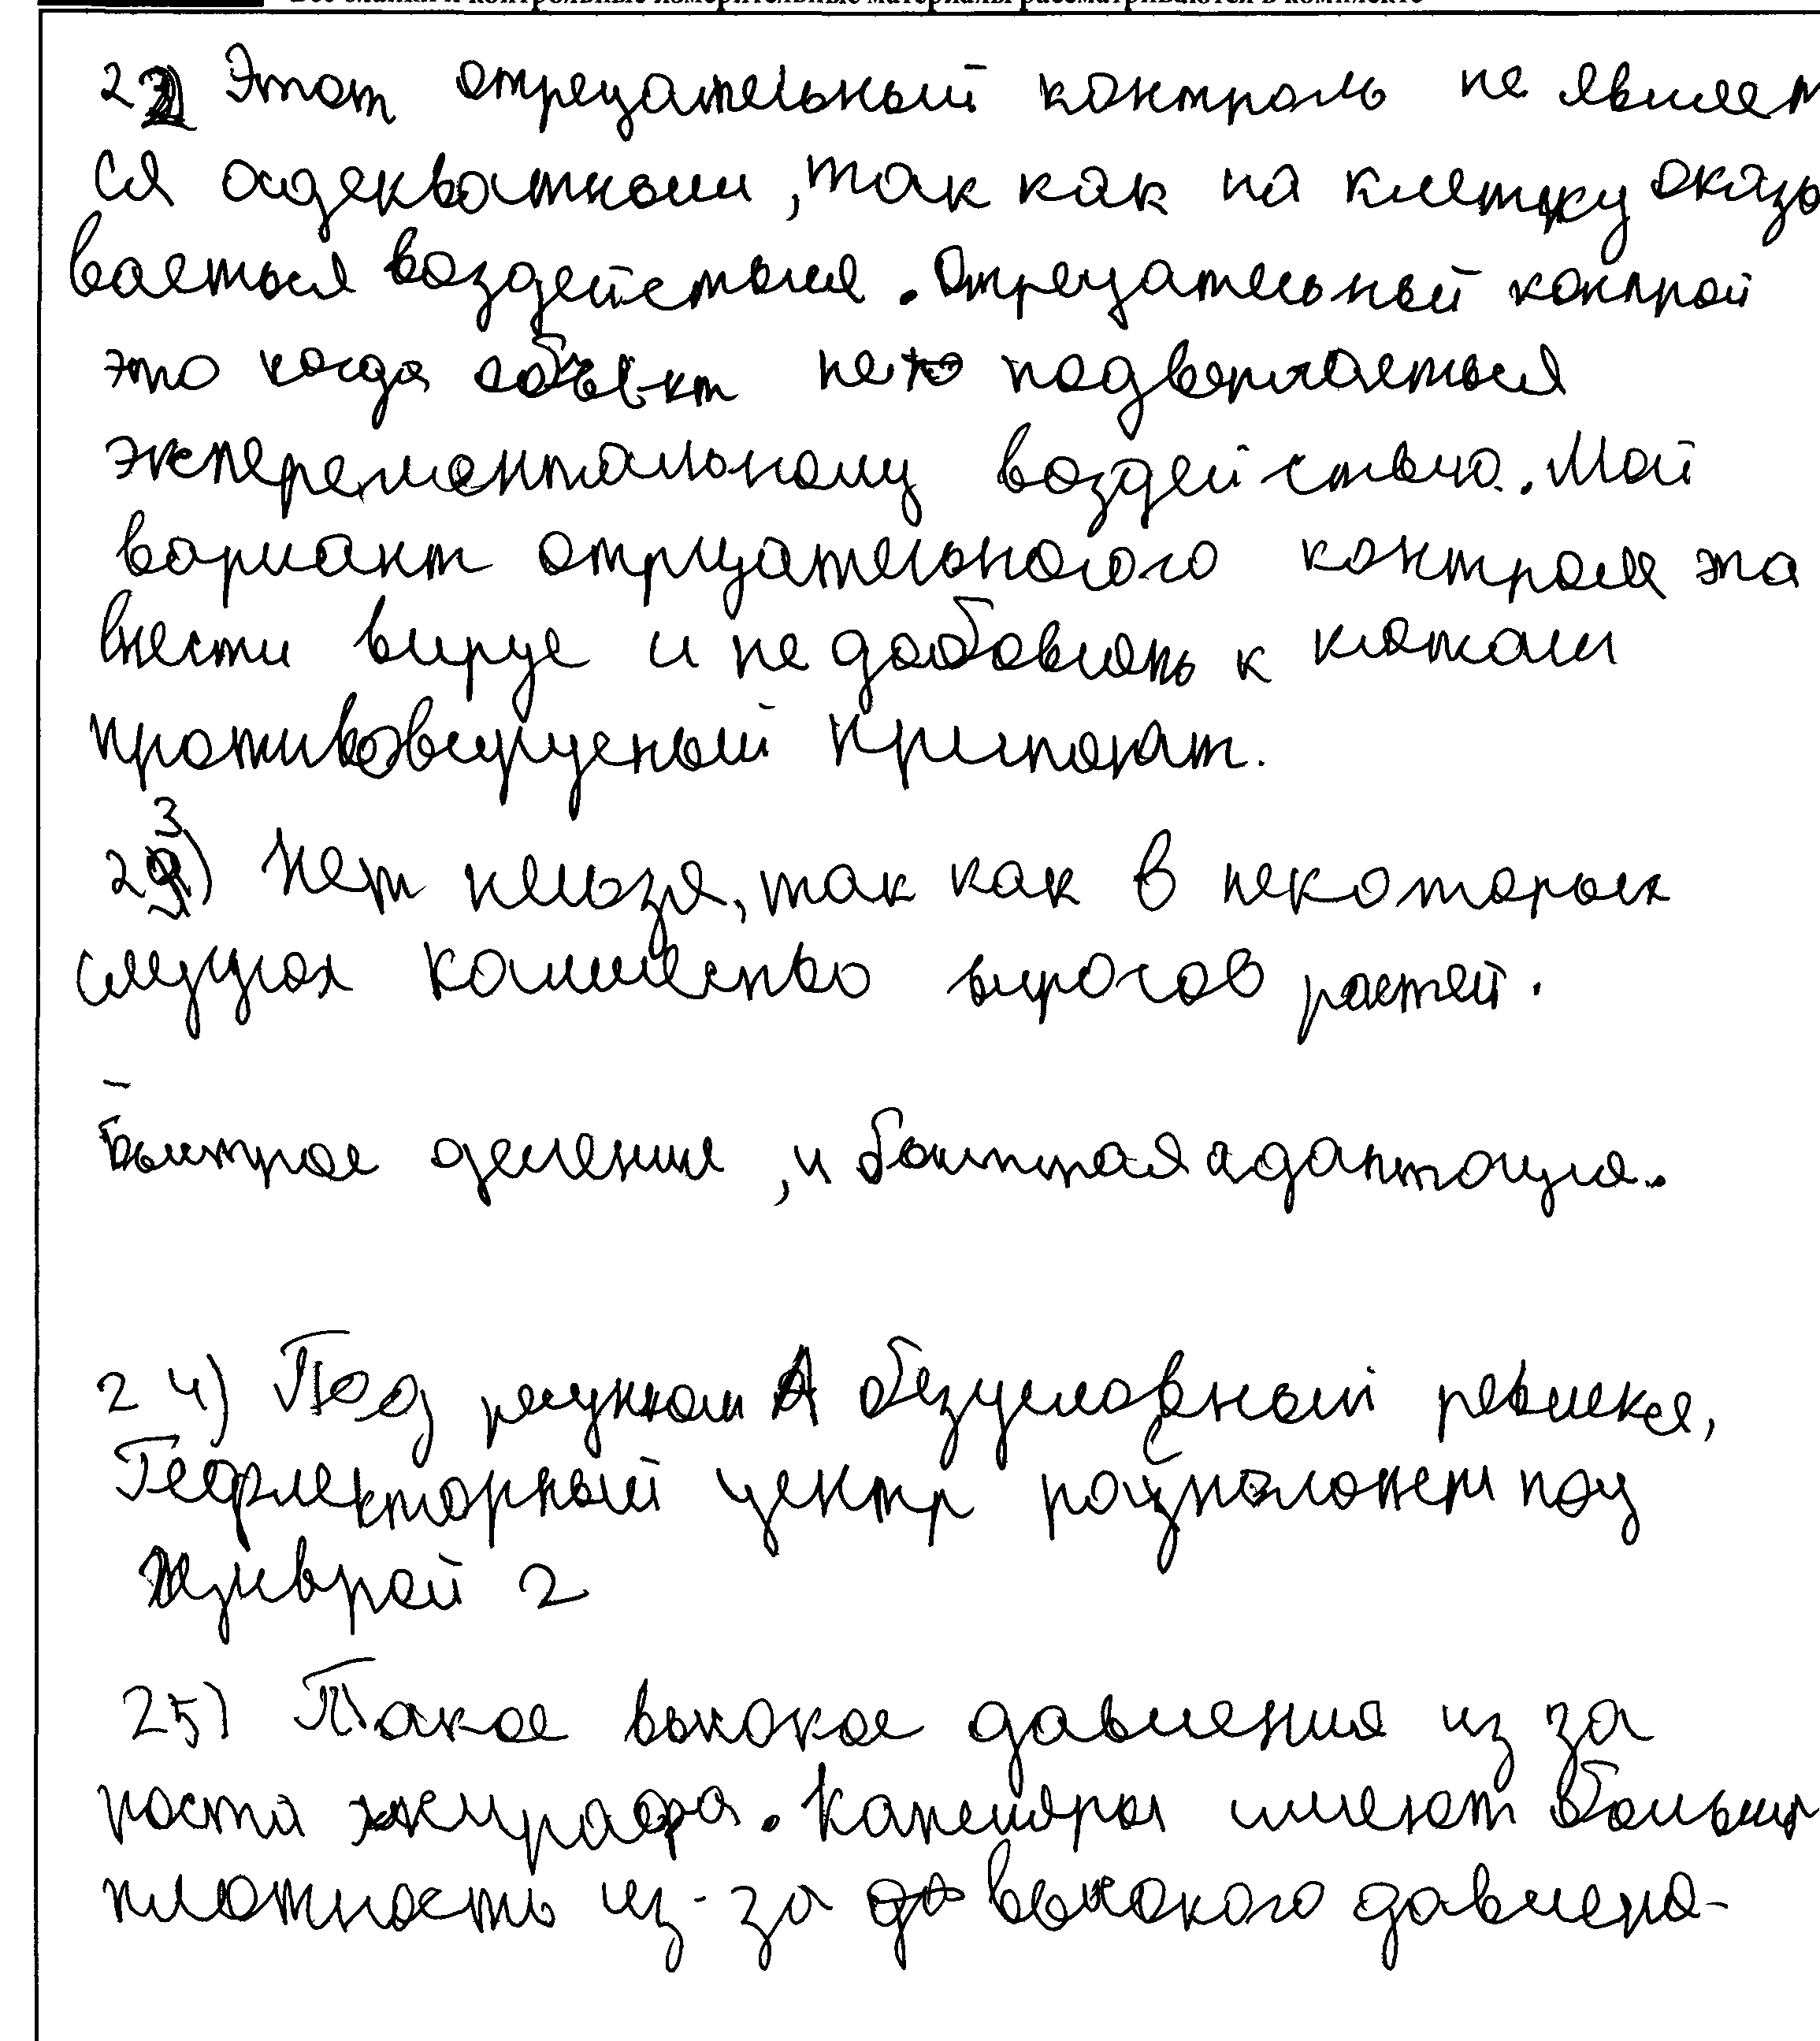 Все бланки и контрольные измерительные материалы рассматриваются в комплекте
22 Этот отрецательный контроль не являет
ся адекватным, так как на клетку оказы
вается воздействия. Отрецательный контрой
это когда объект не подвергаеться
эксперементальному воздействию. Мой
вариант отрицательного контроля эта
внести вирус и не добовлять к клеткам
противовирусный препорат.
23) Нет нельзя, так как в некоторых
случаях количество вирусов растёй.
Быстрое деление, и быстрая адаптация.
24) Под рисунком А безусловный рефлекся,
Рефлекторный центр расположен под
цифрой 2
25) Такое высокое давления из за
роста жирафа. Капеляры имеют больш
плотность из-за высокого давлена-